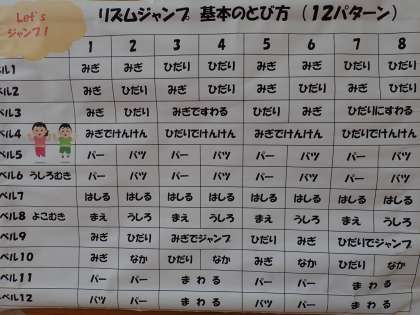 Let's
ジャンプ!
リズムジャンプ 基本のとび方 (12パターン)
1 2 3 4 5 6 7 8
ベル1 みぎ みぎ ひだり ひだり みぎ みぎ ひだり ひだり
ベル2 みぎ ひだり みぎ ひだり みぎ ひだり みぎ ひだり
ベル3 みぎ ひだり みぎですわる ひだり みぎ ひだりにすわる
ベル4 みぎでけんけん ひだりでけんけん みぎでけんけん ひだりでけんけん
ベル5 パー パツ パー パツ パー パツ パー パツ
ベル6 うしろむき パー パツ パー パツ パー パツ パー パツ
ベル7 はしる はしる はしる はしる はしる はしる はしる はしる
ベル8 よこむき まえ うしろ まえ うしろ まえ うしろ まえ うしろ
ベル9 みぎ ひだり みぎでジャンプ ひだり みぎ ひだりでジャンプ
ベル10 みぎ なか ひだり なか みぎ なか ひだり なか
ベル11 パー パー まわる パー パー まわる
ベル12 パツ パー まわる パツ パー まわる